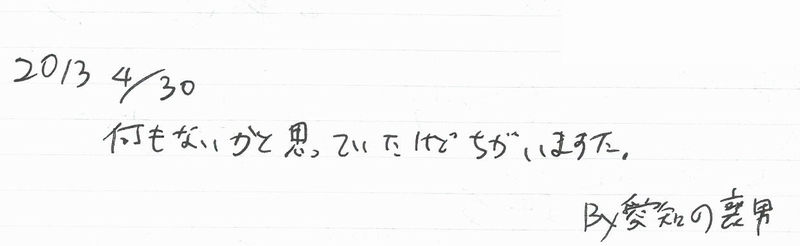 2013 4/30
何もないかと思っていたけどちがいますた。
By愛知の喪男